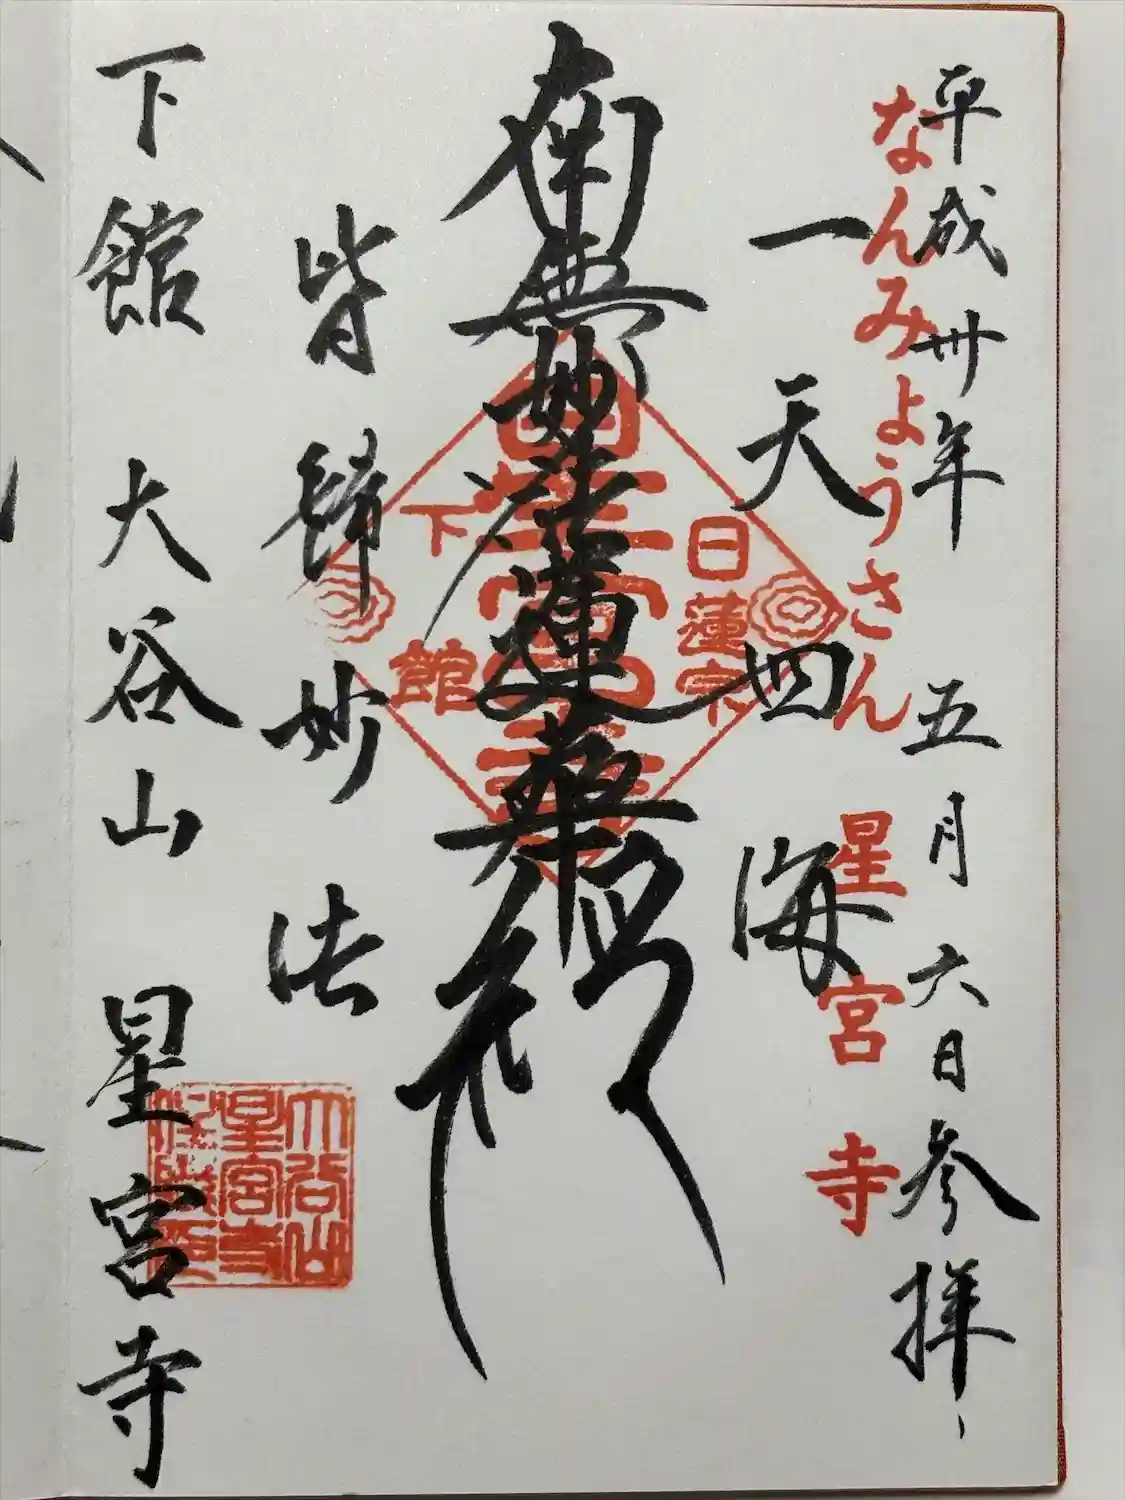 平成卅年 五月六日参拝
なんみょうさん 星宮寺
一天四海
日蓮宗
南無妙法蓮華経
星宮寺
下館
皆歸妙法
大谷山
星宮寺
下館 大谷山 星宮寺